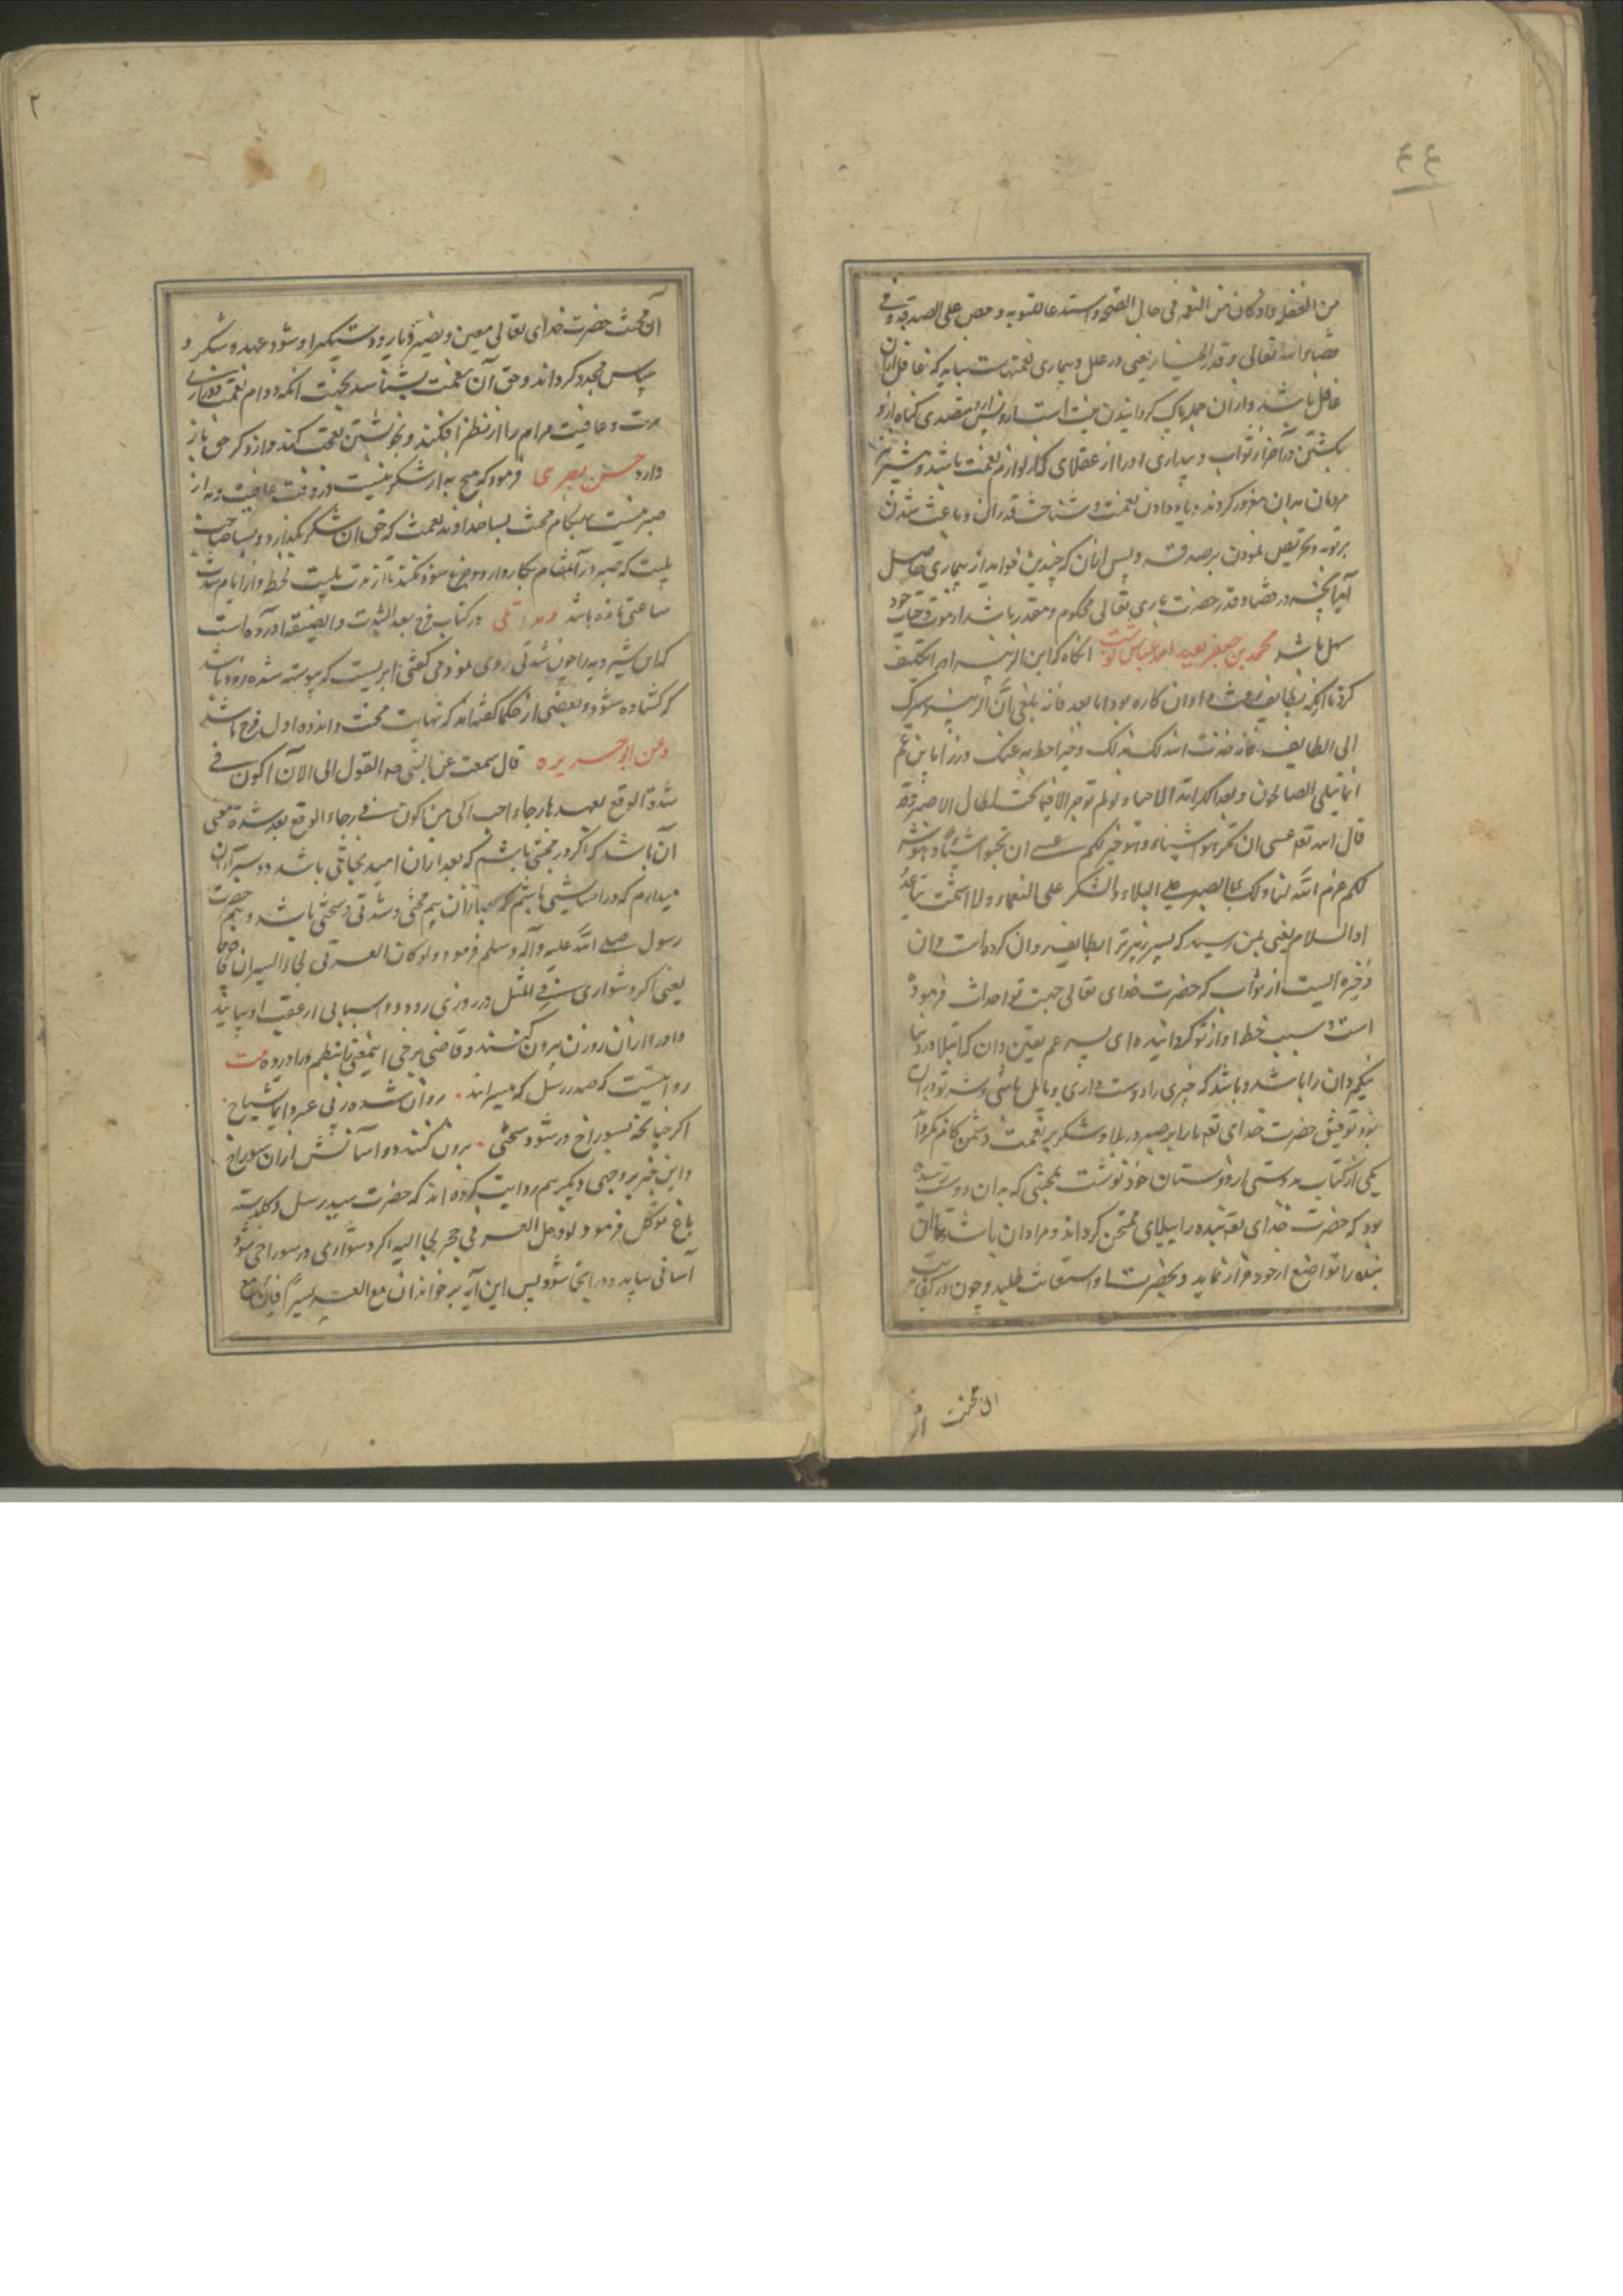 ٤٤
من الغفله واذكار من النعمه فی حال الصحه واستدعا للتوبه وحض علی الصدقه و فی
قضا الله تعالی وقدره الخیار یعنی در علل و بیماری نعمتهاست نباید که عاقل ازان
غافل باشد و ازان جمله پاک گردانیدن
کشتن در آخر از ثواب و بیداری او را از غفلت که از لوازم نعمت باشد و بیشتر
مردمان بدان مغرور گردند و یاد دادن نعمت و شناخت قدر آن و باعث شدن
بر توبه و تحریص نمودن بر صدقه و پس ازان که چندین فواید از بیماری حاصل
آید آنچه در قضا و قدر حضرت باری تعالی محکوم و مقدر باشد از موت و حیات خود
سهل باشد محمد بن جعفر بعبد الله عباس نوشت انگاه که ابن الزبیر او را تکلیف
کرد تا آنکه بطایف رود و او ازان کاره بود اما بعد فانه بلغنی ان ابن الزبیر سیرک
الی الطایف فاحدث الله لک بذلک ذخرا حط به عنک وزرا یا بن عم
انما یبتلی الصالحون و یعد الکرامه للاخیار و لو لم توجر الا فیما تحب لقل الاجر وقد
قال الله تع عسی ان تکرهوا شیئا و هو خیر لکم و عسی ان تحبوا شیئا و هو شر
لکم عزم الله لنا و لک بالصبر علی البلاء والشکر علی النعماء ولا اشمت بنا عدوا
والسلام یعنی بمن رسید که پسر زبیر ترا بطایف روان کرده است و آن
ذخیره ایست از ثواب که حضرت خدای تعالی جهت تو احداث فرموده
است و سبب حط اوزار تو گردانیده ای پسر عم یقین دان که ابتلا در دنیا
نیکمردان را باشد و باشد که چیزی را دوست داری و مایل باشی و شر تو دران
بود توفیق حضرت خدای تع ما را بر صبر در بلا و شکر بر نعمت و دشمن کام مگرداناد
یکی از کتاب به دوستی از دوستان خود نوشت بمحنتی که بدان دوست رسیده
بود که حضرت خدای تع بنده را ببلای ممتحن گرداند و مراد آن باشد تا آن
بنده را تواضع از خود فراز نماید و بحضرت او استعانت طلبد و چون در کفایت
آن محنت از
٢
آن محنت حضرت خدای تعالی معین و نصیر و یار و دستگیر او شود عهد و شکر و
سپاس مجدد گرداند و حق آن نعمت بشناسد بجهت آنکه دوام نعمت و درازی
مدت و عافیت مرام را از نظر افکند و بخویشتن معجب کند و از ذکر حق باز
دارد حسن بصری فرمود که هیچ به از شکر نیست در وقت عافیت و به از
صبر نیست بهنگام محنت بسا خداوند نعمت که حق آن شکر نگذارد و بسا صاحب
بلیت که صبر در آن مقام بکار دارد
ساعتی مانده باشد و مداینی در کتاب فرج بعد الشدت والضیقه آورده است
که ابن شبرمه را چون شدتی روی نمودی گفتی ابریست که پیوسته شده زود باشد
که گشاده شود و بعضی از حکما گفته‌اند که نهایت محنت و اندوه اول فرح باشد
وعن ابو هریره قال سمعت عن النبی صه القول لئن اکون فی
شدة اتوقع بعدها رجاء احب الی من ان اکون فی رجاء اتوقع بعد شدة معنی
آن باشد که اگر در محنتی باشم که بعد ازان امید نجاتی باشد دوستر ازان
میدارم که در آسایشی باشم که بعد ازان بیم محنتی و شدتی و سختی باشد و هم حضرت
رسول صلی الله علیه وآله وسلم فرمود و لو کان العسر فی کوة لجاء الیسران فاخرجاه
یعنی اگر دشواری فی المثل در روزنی رود دو آسانی از عقب او بیایند
و او را از آن روزن بیرون کنند و قاضی برخی این معنی بنظم در آورده بیت
روایتست که صدر رسل که میراند روان شده ز پی عسر
اگر چنانچه بسوراخ در شود سختی برون کنند دو آسانش ازان سوراخ
و این خبر بر وجهی دیگر هم روایت کرده‌اند که حضرت سید رسل و گلدسته
باغ توکل فرمود لو دخل العسر فی حجر لجا الیه اگر دشواری در سوراخی شود
آسانی بیاید و در آنجا شود پس این آیه بر خواند ان مع العسر یسرا فان مع